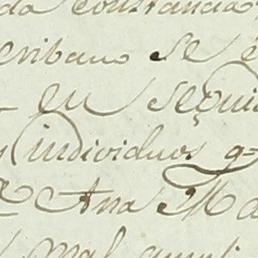 da constancia
cribano se e
en seguid
individuos q=
Ana Ma